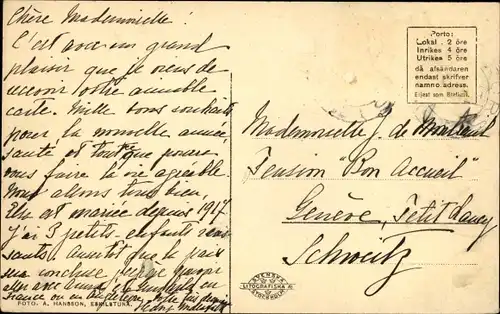 Chère Mademoiselle!
C'est avec un grand
plaisir que je viens de
recevoir votre aimable
carte. Mille bons souhaits
pour la nouvelle année
santé et tout que pourra
vous faire la vie agréable.
Nous allons tous bien,
Elsa est mariée depuis 1917
J'ai 3 petits-enfants
sants. Aussitot que la paix
sera conclue
elles avec
France ou en Angleterre. Mille
FOTO. A. HANSSON, ESKILSTUNA.
SVENSKA
LITOGRAFISKA
STOCKHOLM
Porto:
Lokal . 2 öre
Inrikes 4 öre
Utrikes 5 öre
då afsändaren
endast skrifver
namn o. adress.
Eljest som Brefkort.
Mademoiselle J. de Montreuil
Pension "Bon Accueil"
Genève, Petit Lancy
Schweitz